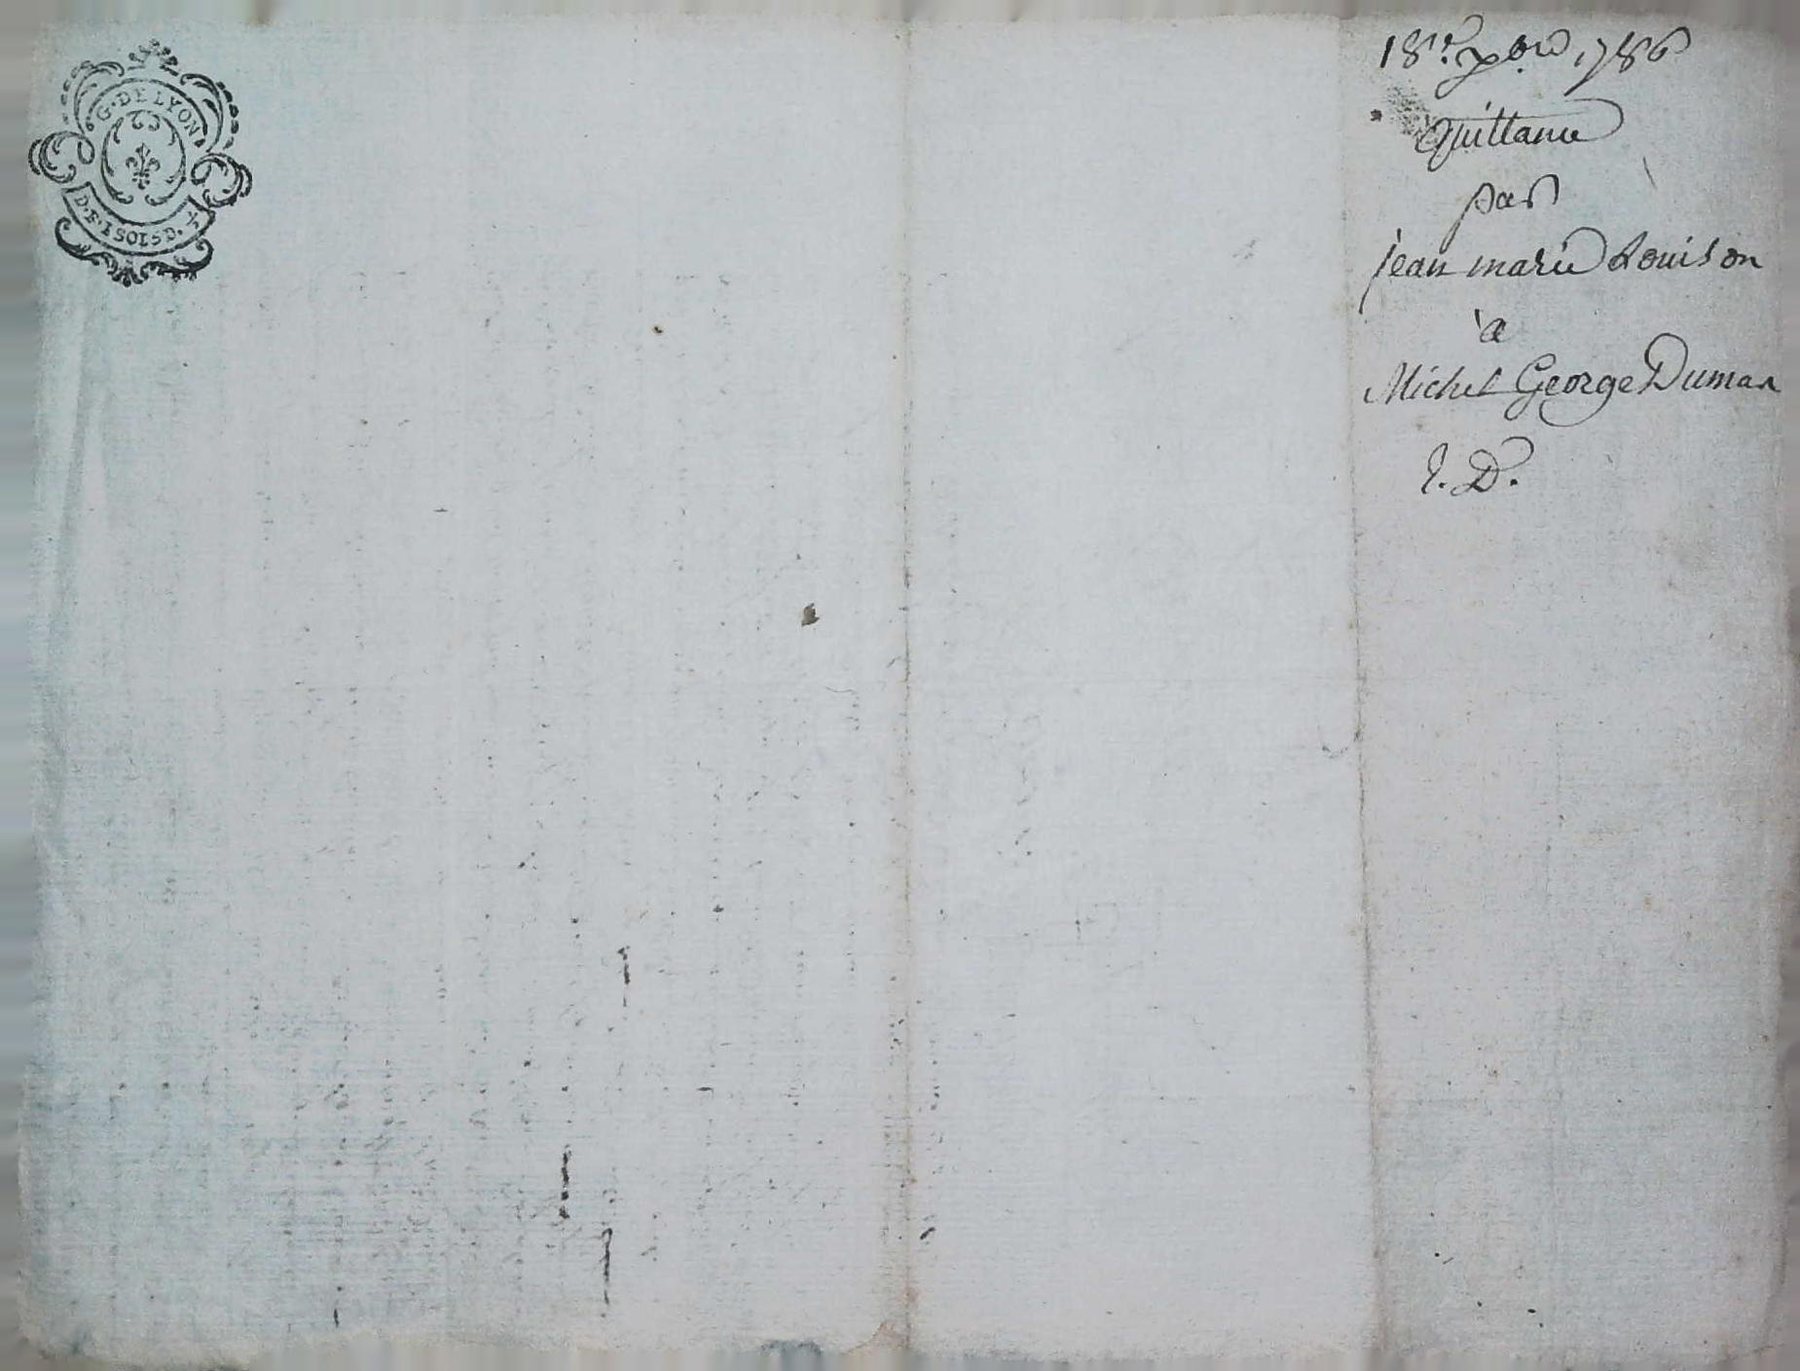 G. DE LYON
D. E. 1 SOL 5 D.
18e. xbre 1786
Quittance
par
jean marie Louison
à
Michel George Dumas
E. D.